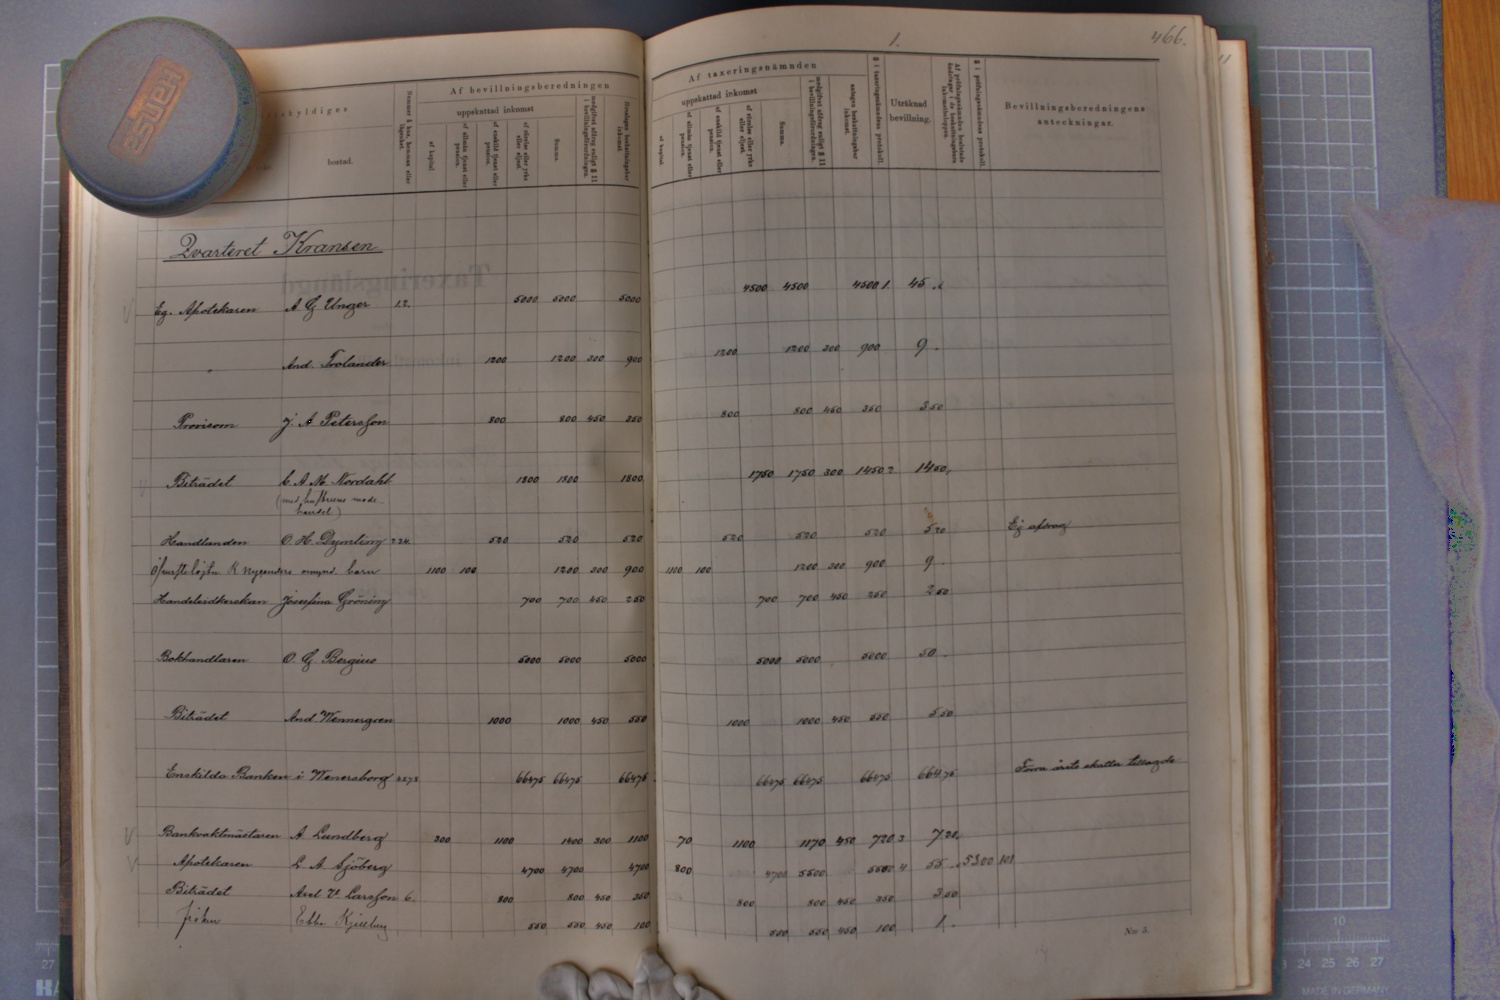 1.
466.
skyldiges
bostad.
Af bevillningsberedningen
uppskattad inkomst
af kapital.
af allmän tjenst eller pension.
af enskild tjenst eller pension.
af rörelse eller yrke eller eljest.
Summa.
medgifvet afdrag enligt § 11 i bevillningsförordningen.
Af taxeringsnämnden
uppskattad inkomst
af kapital.
af allmän tjenst eller pension.
af enskild tjenst eller pension.
af rörelse eller yrke eller eljest.
Summa.
medgifvet afdrag enligt § 11 i bevillningsförordningen.
antagen beskattningsbar inkomst.
§ i taxeringsnämndens protokoll.
Uträknad bevillning.
§ i pröfningsnämndens protokoll.
Bevillningsberedningens anteckningar.
Qvarteret Kransen
Eg. Apotekaren A G Unger 12. 5000 5000 5000 4500 4500 4500 1. 45
And. Frolander 1200 1200 300 900 1200 1200 300 900 9
Provisorn J. A Petersson 800 800 450 350 800 800 450 350 3 50
Biträdet C. A. M. Nordahl 1800 1800 1800 1750 1750 300 1450 2 14 50
(med hustruns mode
handel)
Handlanden O. H. Dymling 520 520 520 520 520 520 5 20 Ej afdrag
K Nycanders omynd. barn 1100 100 1200 300 900 1100 100 1200 300 900 9
Handelsidkerskan Josefina Gröning 700 700 450 250 700 700 450 250 2 50
Bokhandlaren O. G Bergius 5000 5000 5000 5000 5000 5000 50
Biträdet And. Wennergren 1000 1000 450 550 1000 1000 450 550 5 50
Enskilda Banken i Wenersborg 66475 66475 66475 66475 66475 66475 664 75
Bankvaktmästaren A Lundberg 300 1100 1400 300 1100 70 1100 1170 450 720 3 7 20
Apotekaren L. A Sjöberg 4700 4700 4700 800 4700 5500 5500 4 55 5300 101
Biträdet Axel V. Larsson 6. 800 800 450 350 800 800 450 350 3 50
Ebba 550 550 450 100 550 550 450 100 1
N:o 5.
27
10
24 25 26 27
MADE IN GERMANY
hansa